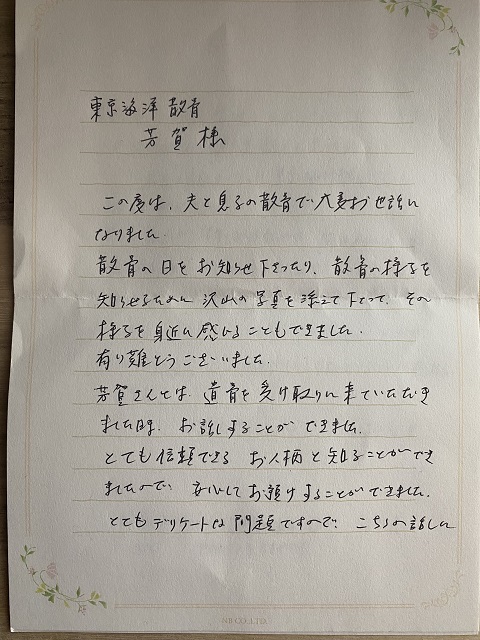 東京海洋散骨
芳賀様
この度は、夫と息子の散骨で大変お世話に
なりました。
散骨の日をお知らせ下さったり、散骨の様子を
知らせるために沢山の写真を添えて下さって、その
様子を身近に感じることもできました。
有り難とうございました。
芳賀さんとは、遺骨を受け取りに来ていただき
ました時、お話しすることができました。
とても信頼できるお人柄と知ることができ
ましたので、安心してお願いすることができました。
とてもデリケートな問題ですので、こちらの話しに